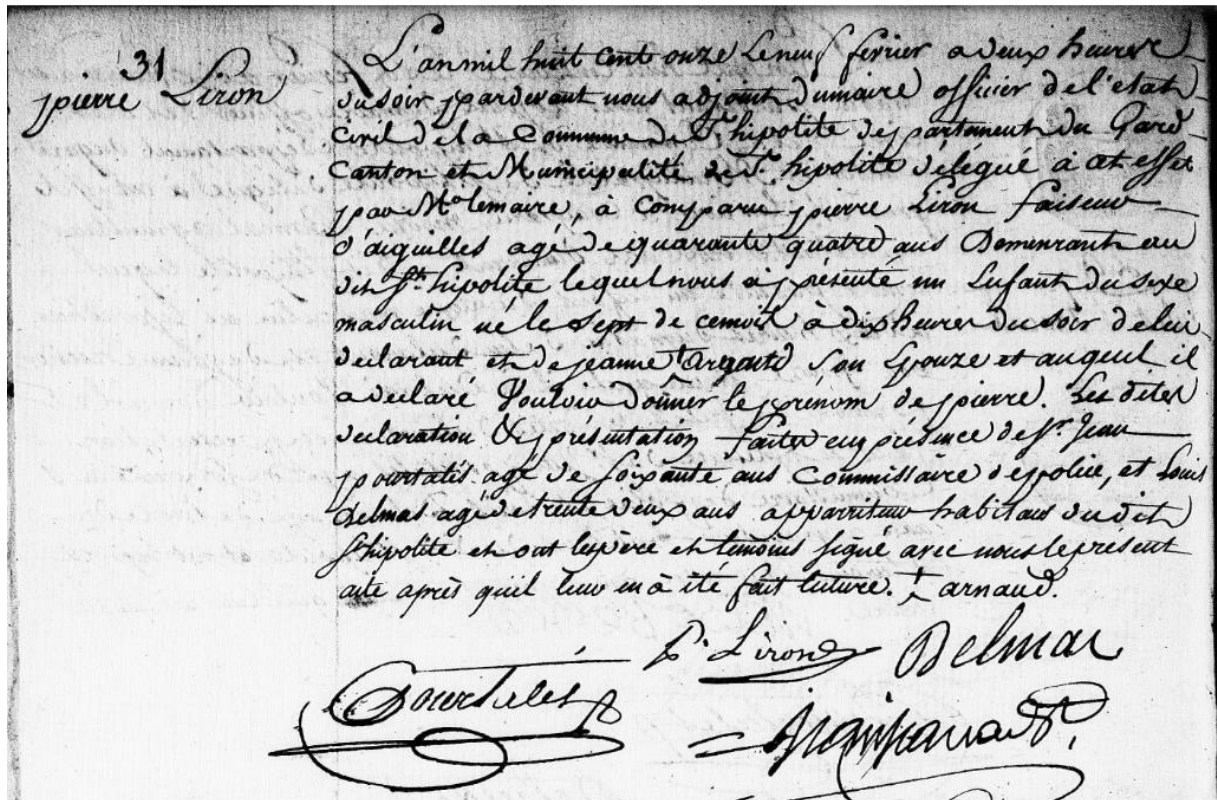 31
pierre Liron
L'an mil huit cent onze Le neuf fevrier a deux heures
du soir pardevant nous adjoint dumaire officier de l'état
civil de la Commune de St. hipolite departement du Gard
Canton et Municipalité de St. hipolite délégué à cet effet
par Mr. lemaire, à Comparu pierre Liron faiseur
d'aiguilles agé de quarante quatre ans Demeurant au
dit St. hipolite lequel nous à présenté un Enfant du sexe
masculin né le sept de cemois à dix heures du soir de lui
declarant et de jeanne † son Epouze et auquel il
a declaré Vouloir donner le prénom de pierre. Les dites
declaration & présentation faites en présence de Sr. Jean
pourtalés agé de soixante ans Commissaire de police, et Louis
Delmas agé de trente deux ans apparriteur habitans du dit
St. hipolite et ont lepère et temoins signé avec nous le present
acte après qu'il leur en à été fait lecture. † arnaud.
P. Liron Delmas
Pourtalés